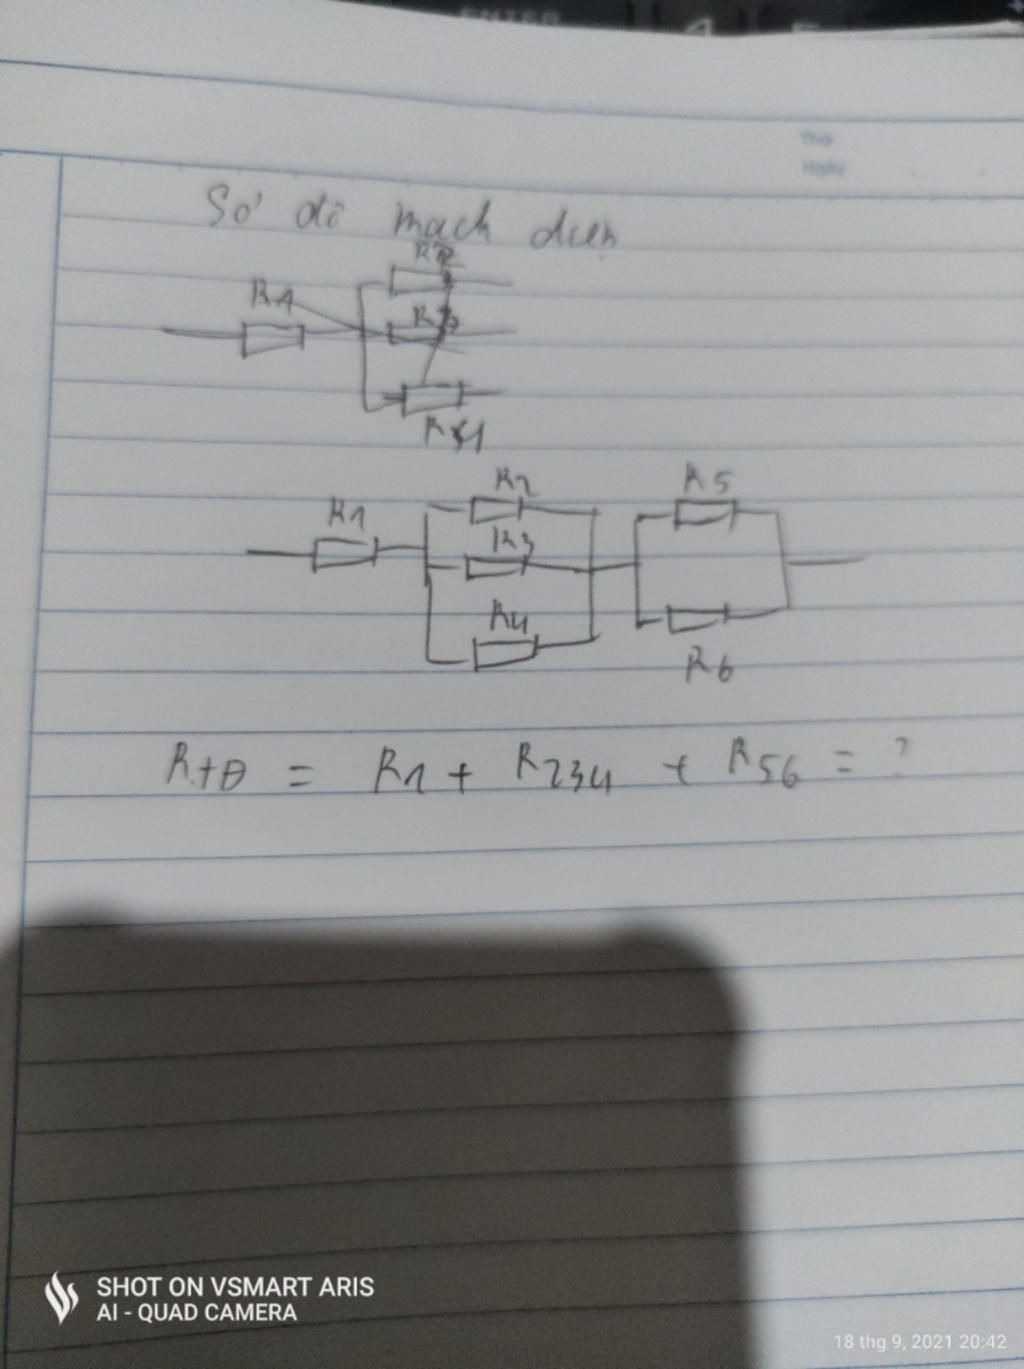 ENTER
Thứ
Ngày
Sơ đồ mạch điện
R2
R1
R3
R4
R2
R5
R1
R3
R4
R6
Rtđ = R1 + R234 + R56 = ?
SHOT ON VSMART ARIS
AI - QUAD CAMERA
18 thg 9, 2021 20:42